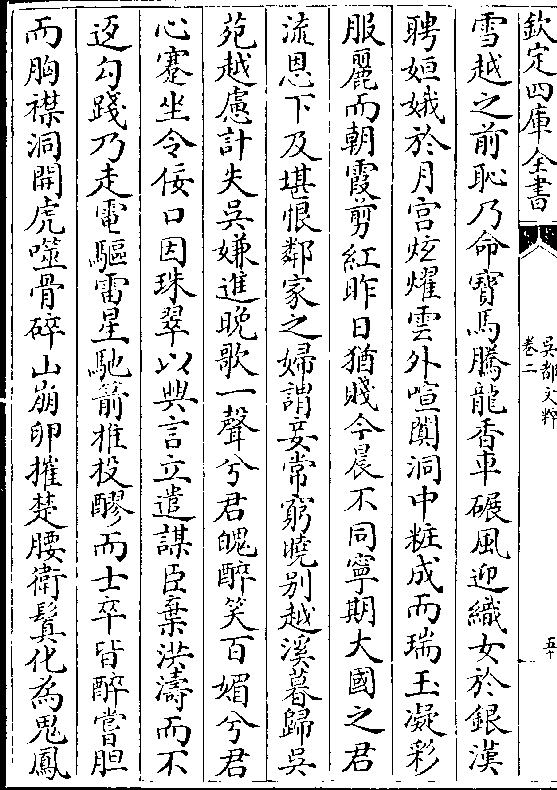 欽定四庫全書
吳都文粹
卷二
五十
雪越之前恥乃命寶馬騰龍香車碾風迎織女於銀漢
聘姮娥於月宮炫燿雲外喧闐洞中粧成而瑞玉凝彩
服麗而朝霞剪紅昨日猶賤今晨不同寧期大國之君
流恩下及堪恨鄰家之婦謂妾常窮曉別越溪暮歸吳
苑越慮計失吳嫌進晚歌一聲兮君魄醉笑百媚兮君
心蹇坐令佞口因珠翠以興言立遣謀臣棄洪濤而不
返勾踐乃走電驅雷星馳箭推投醪而士卒皆醉嘗胆
而胸襟洞開虎噬骨碎山崩卵摧楚腰衛鬢化為鬼鳳